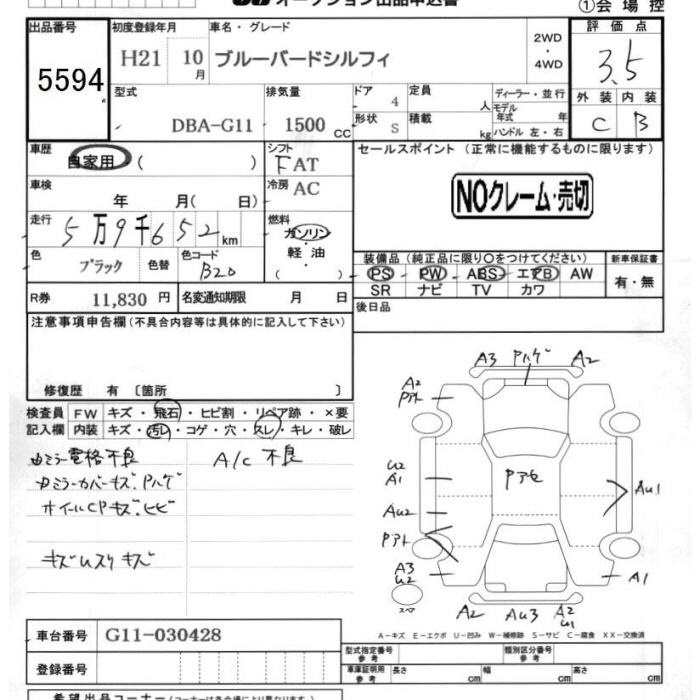 オークション出品申込書
①会場控
出品番号 初度登録年月 車名・グレード 評価点
5594 H21 10月 ブルーバードシルフィ 2WD・4WD 3.5
型式 排気量 ドア 4 定員 人 ディーラー・並行 外装 内装
DBA-G11 1500cc 形状 S 積載 kg モデル年式 年 ハンドル 左・右 C B
車歴 自家用 ( ) シフト FAT セールスポイント (正常に機能するものに限ります)
車検 年 月( 日) 冷房 AC NOクレーム・売切
走行 5万9千652km 燃料 ガソリン・軽油 ( )
色 ブラック 色替 色コード B20 装備品 (純正品に限り○をつけてください) 新車保証書
PS PW ABS エアB AW 有・無
SR ナビ TV カワ
R券 11,830円 名変通知期限 月 日 後日品
注意事項申告欄 (不具合内容等は具体的に記入して下さい)
修復歴 有 〔箇所 〕
検査員 FW キズ・飛石・ヒビ割・リペア跡・×要
記入欄 内装 キズ・汚レ・コゲ・穴・スレ・キレ・破レ
ミラー電格不良 A/C 不良
ミラーカバーキズ、Pハゲ
ホイールCPキズ、ヒビ
キズ キズ
A3 Pハゲ A2
A2
U2
A1
Pアセ
AU1
AU2
A3
U2
A1
スペア
A2 AU3 A2
U1
A-キズ E-エクボ U-凹み W-補修跡 S-サビ C-腐食 XX-交換済
車台番号 G11-030428
登録番号
型式指定番号 参考 類別区分番号 参考
車庫証明用 参考 長さ cm 幅 cm 高さ cm
希望出品コーナー (コーナーは各会場により異なります。)